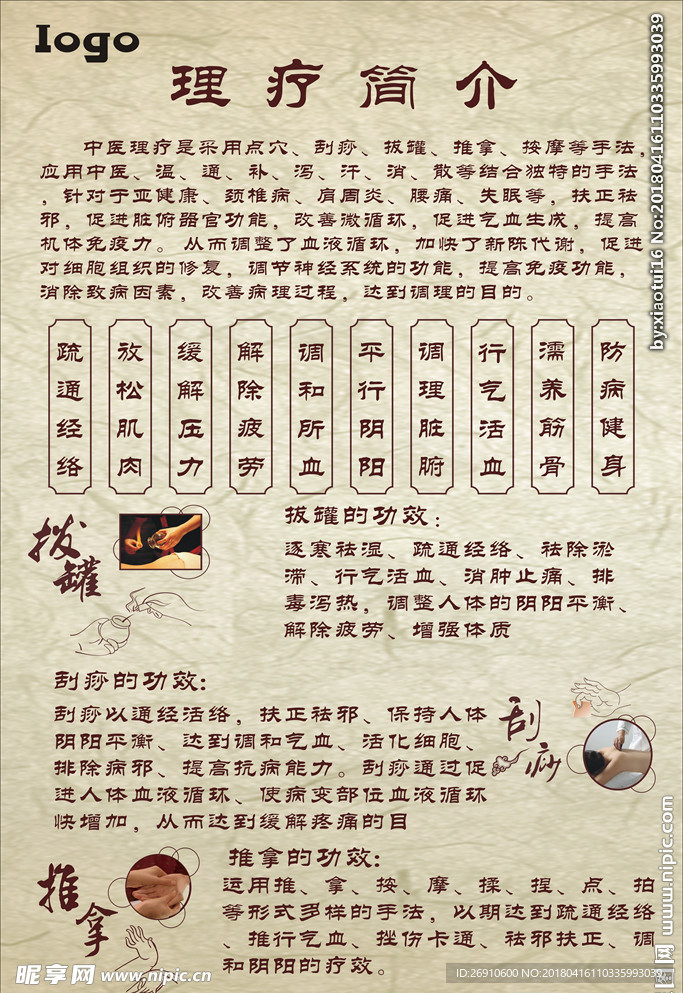 logo
理疗简介
中医理疗是采用点穴、刮痧、拔罐、推拿、按摩等手法,
应用中医、温、通、补、泻、汗、消、散等结合独特的手法
,针对于亚健康、颈椎病、肩周炎、腰痛、失眠等,扶正祛
邪,促进脏俯器官功能,改善微循环,促进气血生成,提高
机体免疫力。从而调整了血液循环,加快了新陈代谢,促进
对细胞组织的修复,调节神经系统的功能,提高免疫功能,
消除致病因素,改善病理过程,达到调理的目的。
疏通经络
放松肌肉
缓解压力
解除疲劳
调和所血
平行阴阳
调理脏腑
行气活血
濡养筋骨
防病健身
拔罐
拔罐的功效:
逐寒祛湿、疏通经络、祛除淤
滞、行气活血、消肿止痛、排
毒泻热,调整人体的阴阳平衡、
解除疲劳、增强体质
刮痧的功效:
刮痧以通经活络,扶正祛邪、保持人体
阴阳平衡、达到调和气血、活化细胞、
排除病邪、提高抗病能力。刮痧通过促
进人体血液循环、使病变部位血液循环
快增加,从而达到缓解疼痛的目
刮痧
推拿
推拿的功效:
运用推、拿、按、摩、揉、捏、点、拍
等形式多样的手法,以期达到疏通经络
、推行气血、挫伤卡通、祛邪扶正、调
和阴阳的疗效。
by:xiaotui16 No:20180416110335993039
www.nipic.com
昵享网 www.nipic.cn
ID:26910600 NO:20180416110335993039